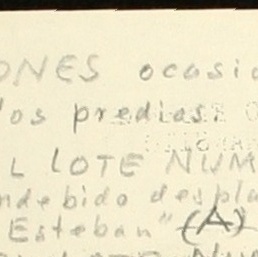 ONES ocasio
los predios:
L LOTE NUM
ndebido despla
Esteban" (A)